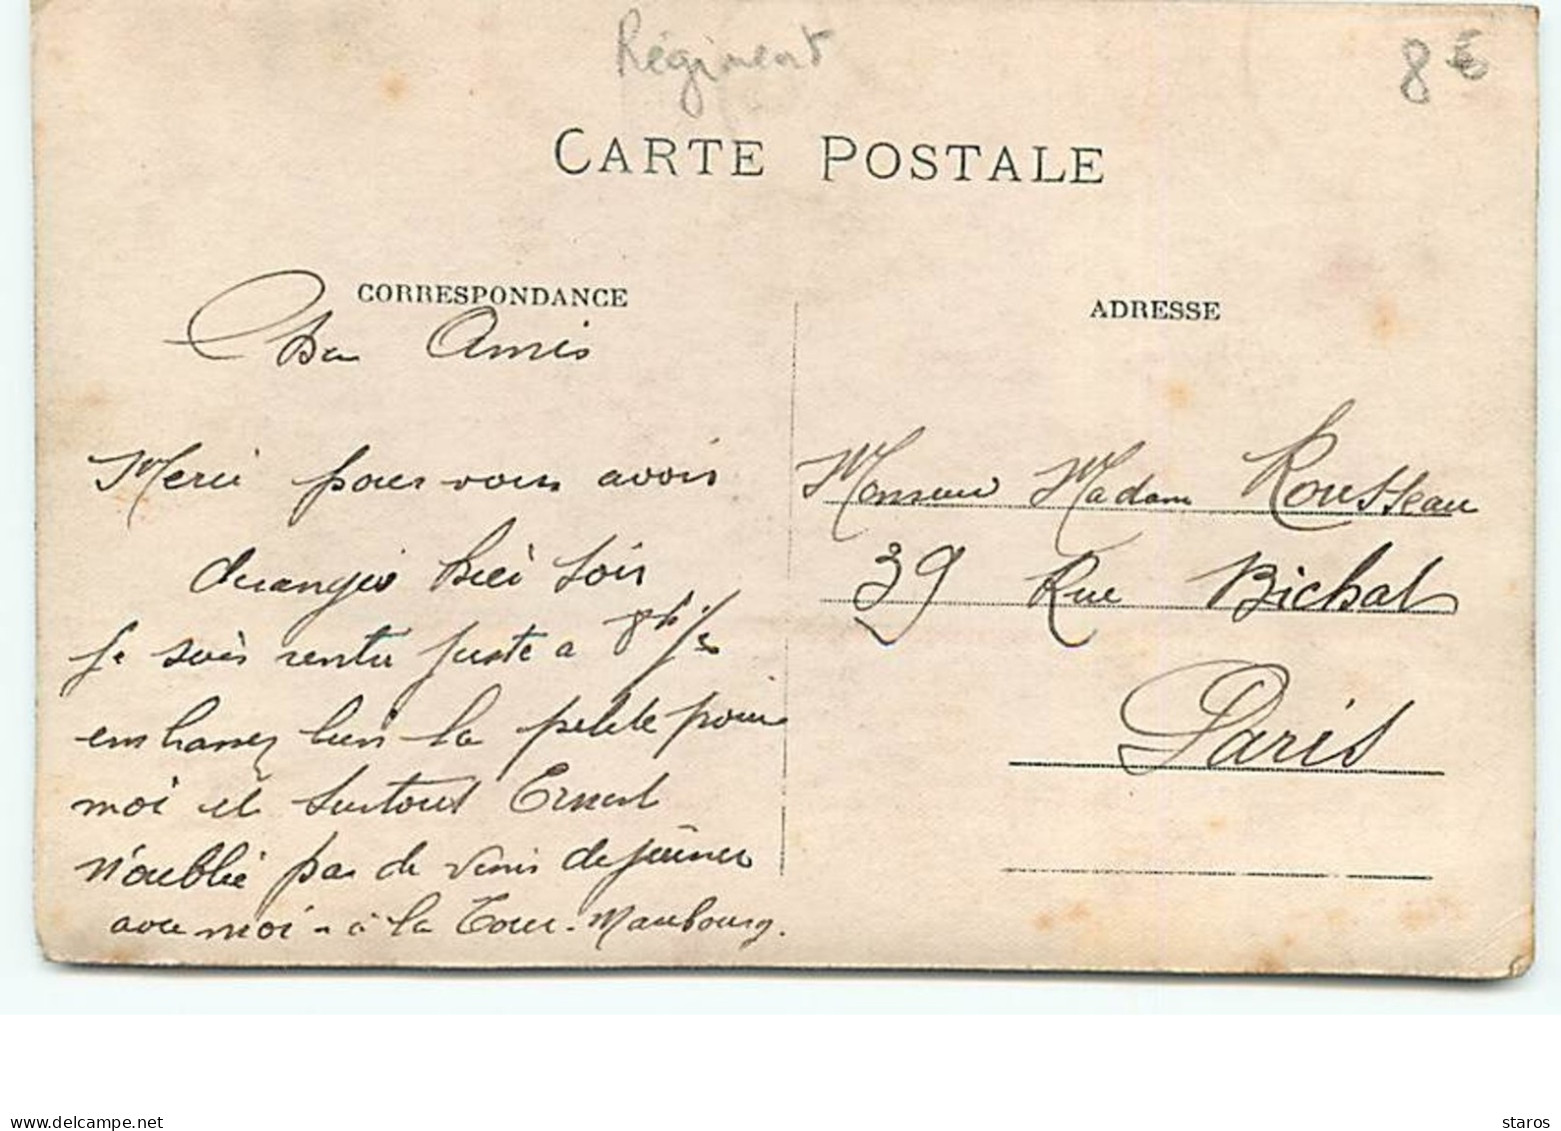 Régiment
8€
CARTE POSTALE
CORRESPONDANCE
ADRESSE
Cher Amis
Merci pour vous avoir
derangés hier soir
Je suis rentré juste a 8h 1/2
embrassez bien la petite pour
moi et surtout Ernest
n'oublie pas de venir dejeuner
avec moi - à la Tour-Maubourg.
Monsieur Madame Rousseau
39 Rue Bichat
Paris
delcampe.net
staros